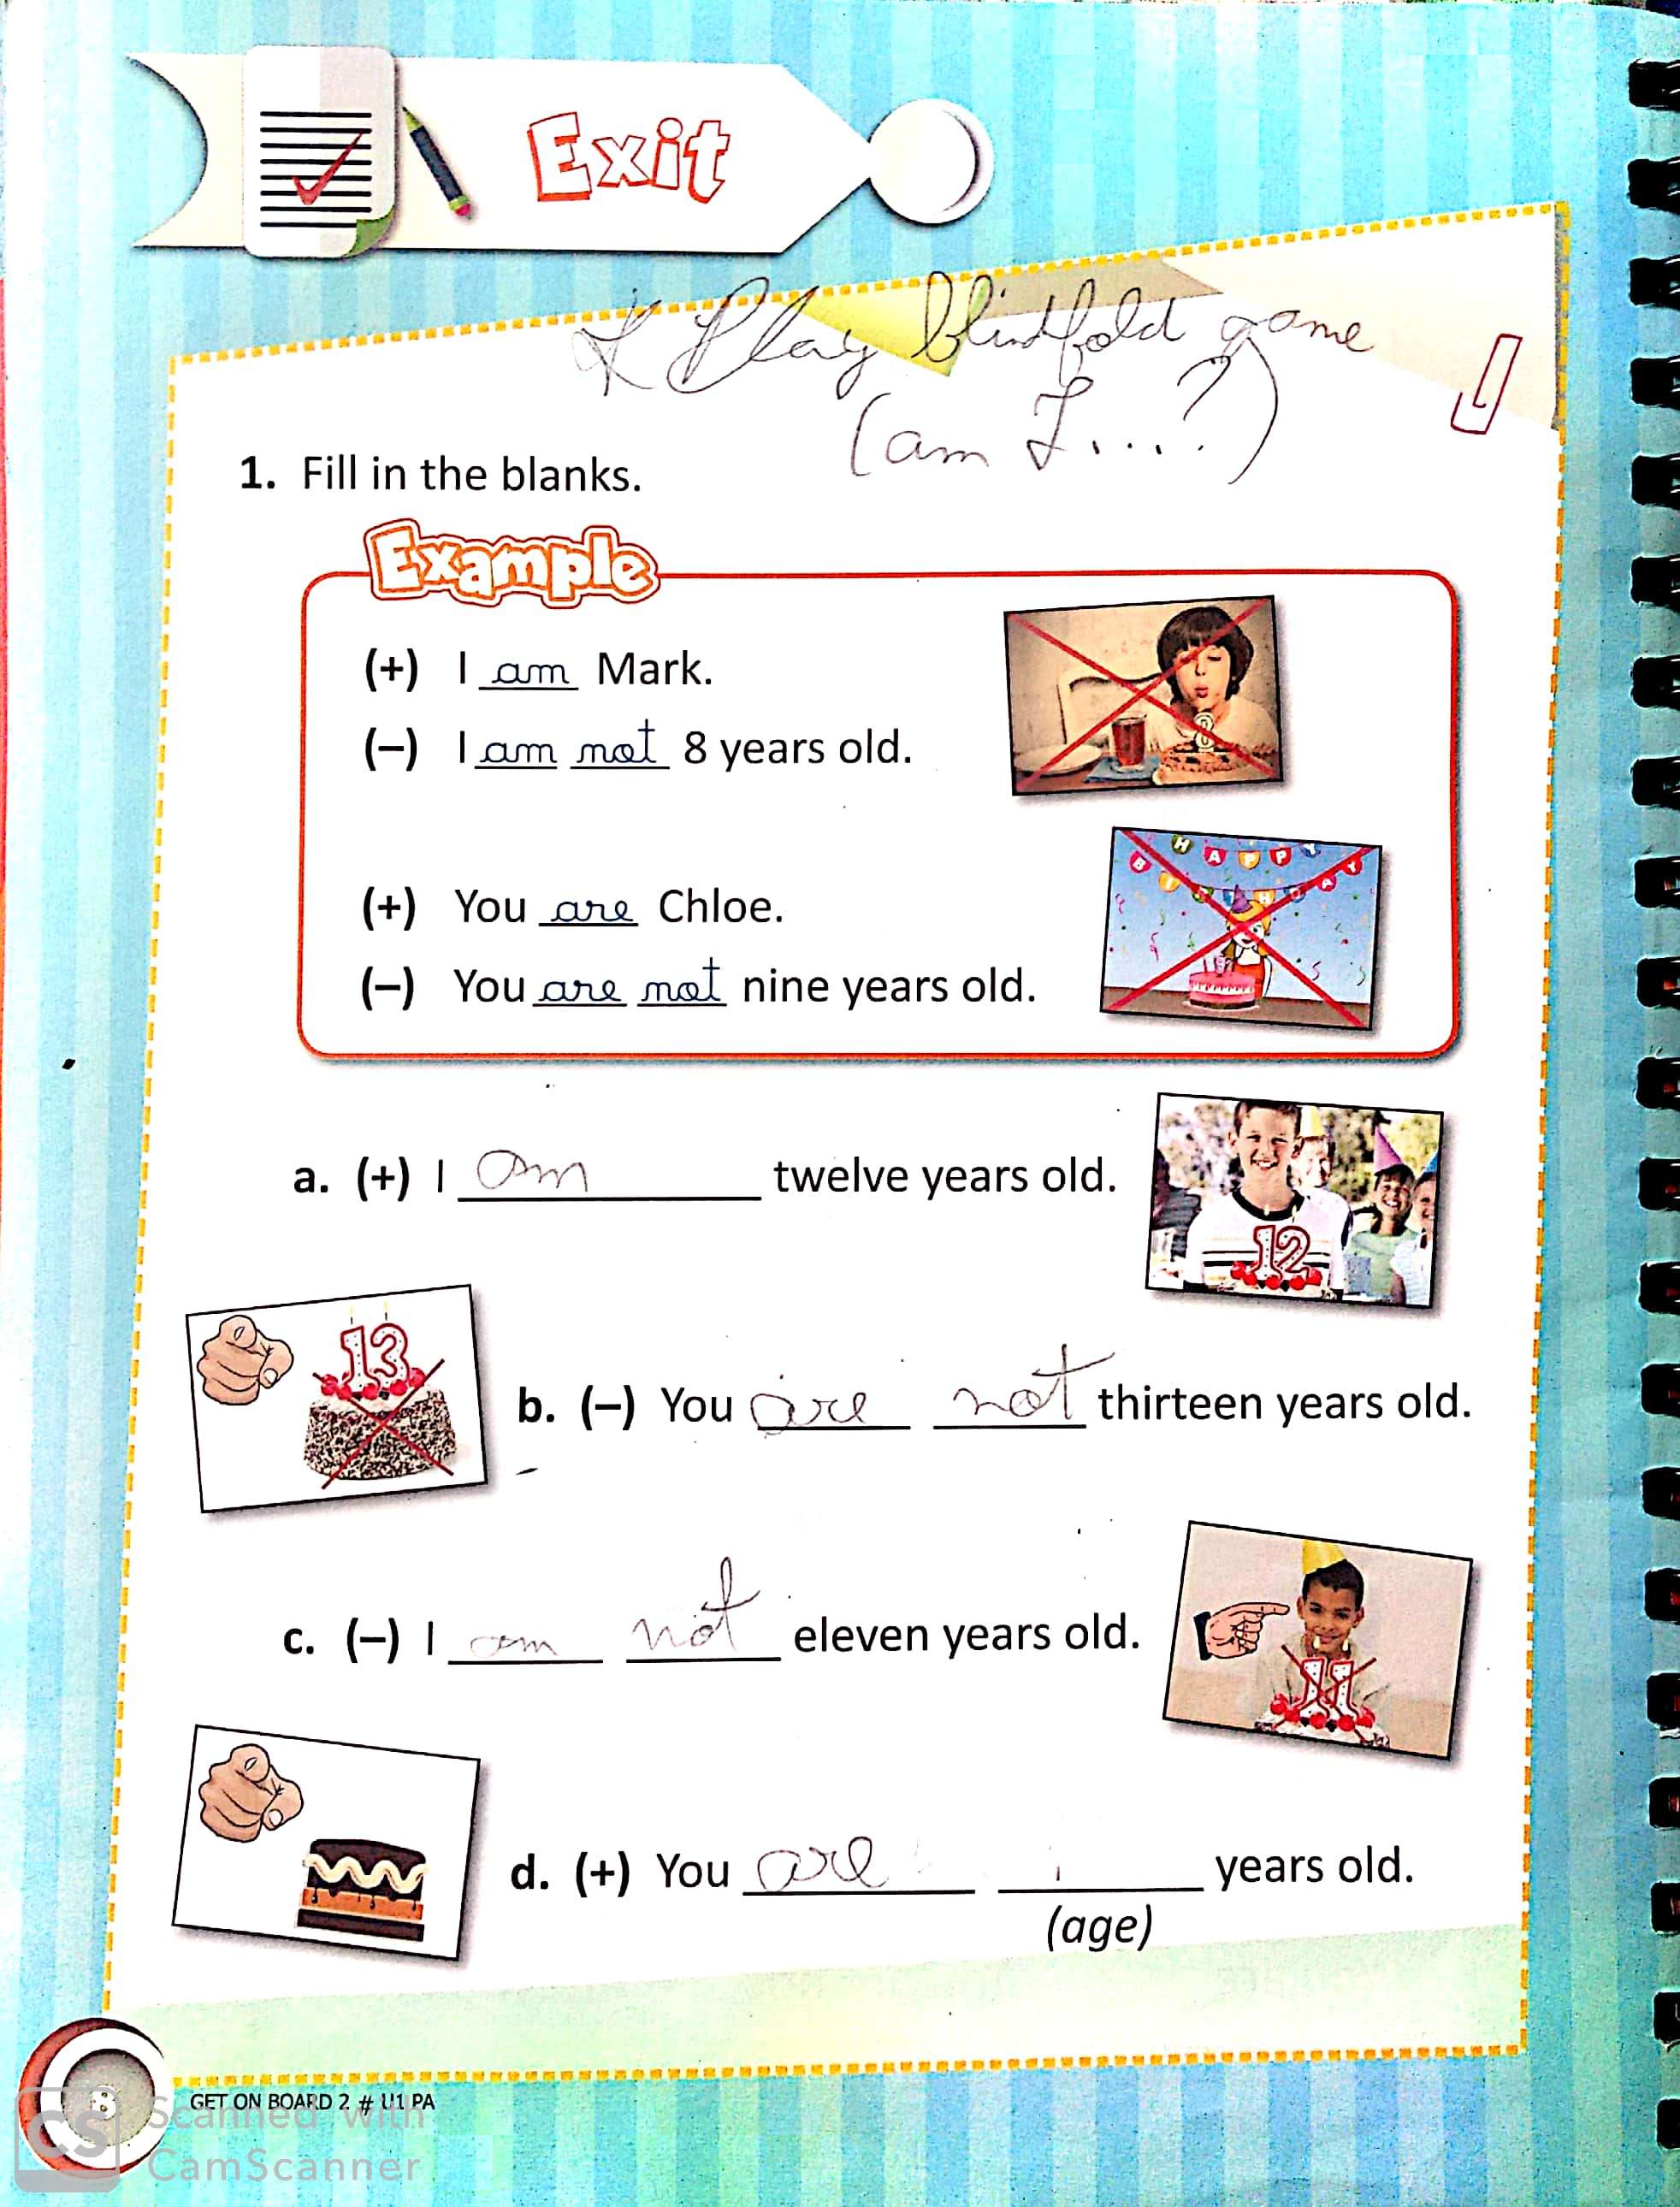 Exit
* Play blindfold game
(am I....?)
1. Fill in the blanks.
Example
(+) I am Mark.
(–) I am not 8 years old.
8
HAPPY
BIRTHDAY
(+) You are Chloe.
(–) You are not nine years old.
a. (+) I am twelve years old.
12
13
b. (–) You are not thirteen years old.
c. (–) I am not eleven years old.
11
d. (+) You are years old.
(age)
8
GET ON BOARD 2 # U1 PA
CS
Scanned with
CamScanner